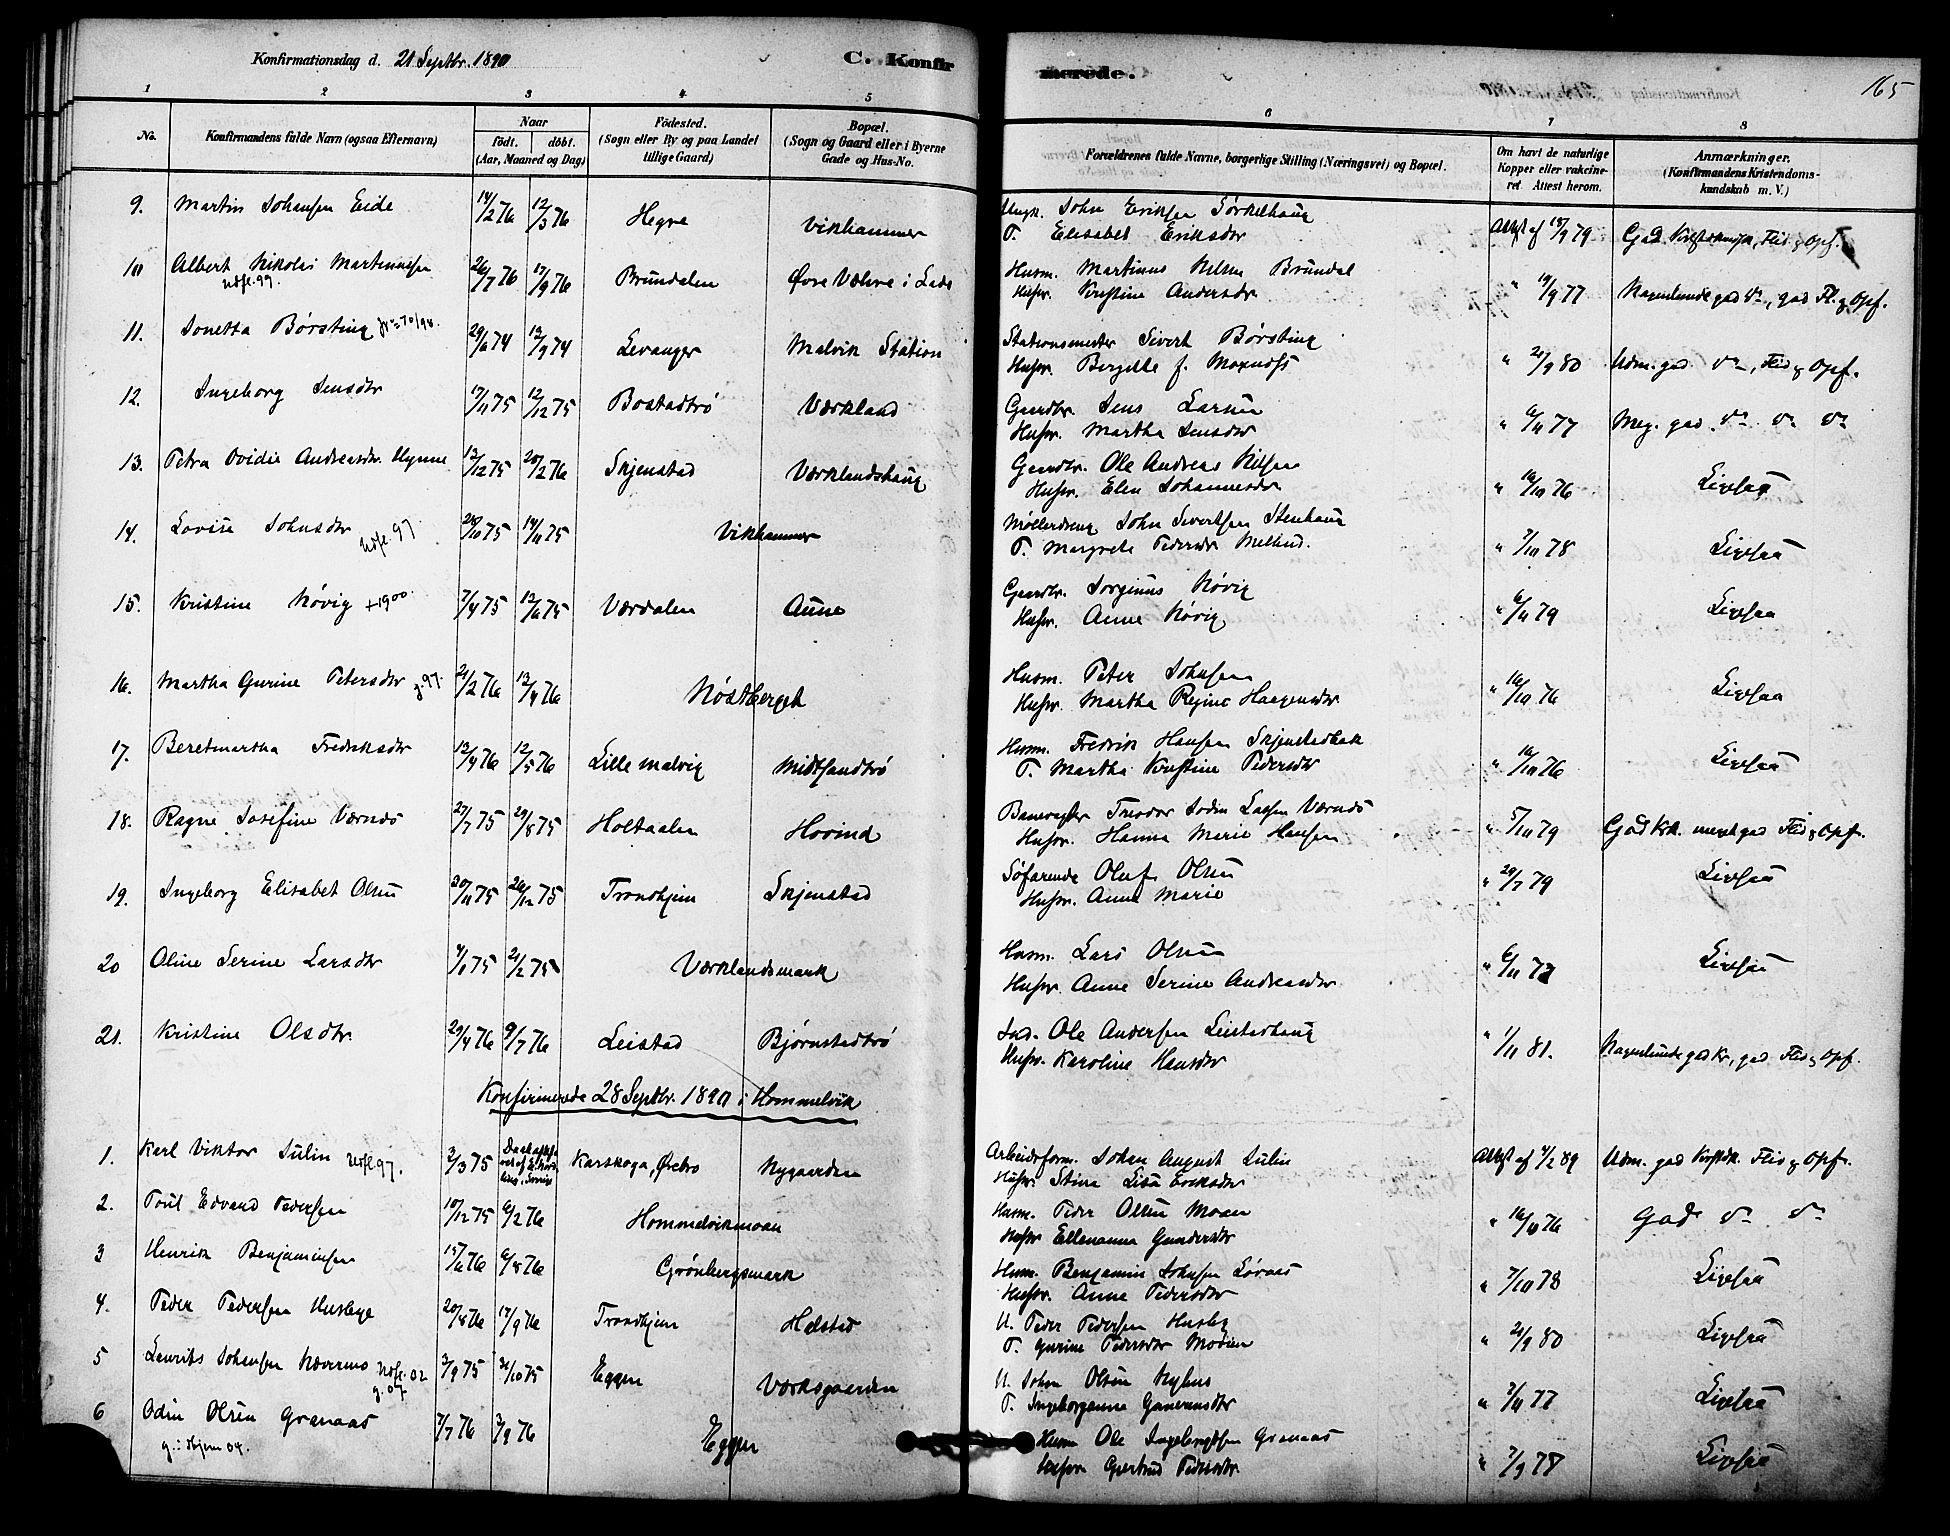 Konfirmationsdag d. 21 Septbr. 1890
C. Konfirmerede.
165
1 2 3 4 5 6 7 8
No.
Konfirmandens fulde Navn (ogsaa Efternavn)
Naar
födt. döbt.
(Aar, Maaned og Dag)
Födested.
(Sogn eller By og paa Landet
tillige Gaard)
Bopæl.
(Sogn og Gaard eller i Byerne
Gade og Hus-No.
Forældrenes fulde Navne, borgerlige Stilling (Næringsvei) og Bopæl.
Om havt de naturlige
Kopper eller vakcine-
ret. Attest herom.
Anmærkninger.
(Konfirmandens Kristendoms-
kundskab m. V.)
9. Martin Johansen Eide 14/2 76 12/3 76 Hegre Vikhammer
Ungk. John Eriksen
T. Elisabet Eriksdtr Attest af 18/9 79 God Flid & Opf.
10 Albert Nikolai Martinusen 26/7 76 17/9 76 Brundalen Øvre Væhre i Lade
Udfl. 97.
Husm. Martinus Nilsen Brundal
Hustr. Kristine Andersdr " 19/9 77 Nogenlunde god do, god Fl. & Opf.
11. Jonetta Børsting 29/6 74 12/9 74 Levanger Malvik Station
Stationsmester Sivert Børsting
Hustr. Bergitte f. " 21/9 80 Udm. god do, Flid & Opf.
12. Ingeborg Jensdtr 17/11 75 12/12 75 Bostadtrø Værkland
Gaardbr. Jens Larsen
Hustr. Martha Jensdtr " 6/11 77 Meg. god do do do
13. Petra Ovidie Andreasdtr. Hynne 12/12 75 20/2 76 Skjenstad Værklandshaug
Gaardbr. Ole Andreas Nilsen
Hustr. Elen Johannesdtr " 16/10 76 Ligesaa
14. Lovise Johnsdtr 28/10 75 14/11 75 Vikhammer
Udfl. 97.
Møllerdreng John Sivertsen Stenhaug
T. Margrete Pedersdtr " 7/10 78 Ligesaa
15. Kristine Høvig +1900. 7/4 75 12/6 75 Værdalen Aune
Gaardbr. Jorginus Høvig
Hustr. Anne Høvig " 6/11 79 Ligesaa
16. Martha Gurine Petersdtr g. 97. 21/2 76 12/4 76 Nøstberget
Husm. Peter Johnsen
Hustr. Martha Regine Haagensdtr " 16/10 76 Ligesaa
17. Beretmartha Fredriksdtr 12/4 76 12/5 76 Lille malvig Midtsandtrø
Husm. Fredrik Hansen Skjenstadbak
T. Martha Kristine Pedersdtr " 16/10 76 Ligesaa
18. Ragne Josefine Værnes 27/7 75 29/8 75 Holtaalen Hovind
Banevogter Theodor Værnes
Hustr. Hanna Marie Hansen " 5/10 79 God Krk. meget god Flid & Opf.
19. Ingeborg Elisabet Olsen 30/11 75 26/12 75 Trondhjem Skjenstad
Søfarende Oluf Olsen
Hustr. Anne Marie " 29/7 79 Ligesaa
20 Oline Serine Larsdtr 4/1 75 21/2 75 Værklandsmark
Husm. Lars Olsen
Hustr. Anne Serine Andreasdtr " 6/11 77 Ligesaa
21. Kristine Olsdtr. 29/4 76 9/7 76 Leistad Bjørnstadtrø
Ind. Ole Andersen Leistadhaug
Hustr. Karoline Hansdtr " 1/11 81. Nogenlunde god Kr, god Flid & Opf.
Konfirmerede 28 Septbr. 1890 i Hommelvik
1. Karl Viktor Julin Udfl. 97. 2/3 75 Karskoga, Ørebro Nygaarden
Arbeidsform. Johan August Julin
Hustr. Stina Lisa Eriksdtr Attest af 4/2 89 Udm. god Flid & Opf.
2. Poul Edvard Pedersen 10/12 75 6/2 76 Hommelvikmoan
Husm. Peder Olsen Moan
Hustr Ellenanna Gundersdtr " 16/10 76 God do do
3 Henrik Benjaminsen 15/6 76 6/8 76 Grønbergsmark
Husm. Benjamin Johnsen
Hustr. Anne Pedersdtr " 7/10 78 Ligesaa
4. Peder Pedersen Husbye 20/8 76 17/9 76 Trondhjem Halstad
U. Peder Pedersen Husby
T. Gurine Pedersdtr " 21/9 80 Ligesaa
5 Laurits Johansen 2/9 75 31/10 75 Eggen Værksgaarden
Udfl. 02
g. 07.
U. Johan Olsen Nyhus
T. Ingeborganna " 2/11 77 Ligesaa
6 Odin Olsen Granaas 7/7 76 3/9 76 Eggen
Husm Ole Ingebrigtsen Granaas
Hustr Gjertrud Pedersdtr " 7/9 78 Ligesaa